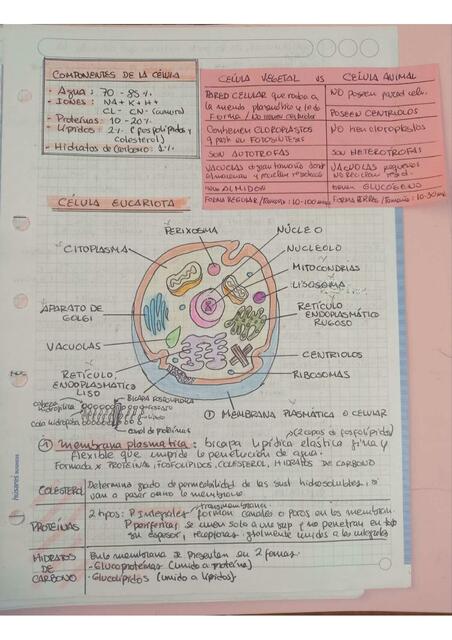 COMPONENTES DE LA CÉLULA
- Agua: 70 - 85 %.
- Iones: NA + K + H +
CL - CN-
- Proteínas: 10 - 20 %.
- Lípidos: 2 % (fosfolípidos y
colesterol)
- Hidratos de Carbono: 1 %
CÉLULA VEGETAL VS CÉLULA ANIMAL
PARED CELULAR que rodea a
la NO poseen pared celu.
POSEEN CENTRIOLOS
Contienen CLOROPLASTOS
FOTOSÍNTESIS
NO tien cloroplastos
SON AUTOTROFAS
SON HETEROTROFAS
VACUOLAS
almacenan y
VACUOLAS pequeñas
ALMIDON
GLUCÓGENO
FORMA REGULAR / Tamaño: 10-100
Tamaño: 10-30
CÉLULA EUCARIOTA
PERIXOSMA
NÚCLEO
CITOPLASMA
NUCLEOLO
MITOCONDRIAS
LISOSOMA
APARATO DE
GOLGI
RETÍCULO
ENDOPLASMÁTICO
RUGOSO
VACUOLAS
CENTRIOLOS
RETÍCULO
ENDOPLASMÁTICO
LISO
RIBOSOMAS
Bicapa fosfolipídica
Cabeza
hidrofílica
Cola hidrofoba
canal de proteínas
① MEMBRANA PLASMÁTICA O CELULAR
(2 capas de fosfolípidos)
① membrana plasmática: bicapa lipídica elástica fina y
flexible que impide la penetración de agua.
Formada x PROTEÍNAS, FOSFOLÍPIDOS, COLESTEROL, HIDRATOS DE CARBONO
COLESTEROL
Determina grado de permeabilidad de las sust hidrosolubles, si
van a pasar o no la membrana
PROTEÍNAS
transmembrana
2 tipos: P integrales: forman canales o poros en la membran.
P periféricas, se unen solo a una sup y no penetran en todo
su espesor, receptores. unidas a las integrales
HIDRATOS
DE
CARBONO
En la membrana se presentan en 2 formas.
- Glucoproteínas (unido a proteína)
- Glucolípidos (unido a lípidos)